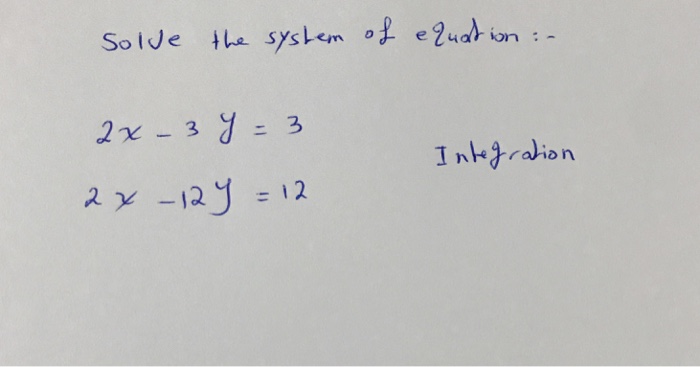 Solve the system of equation :-
2x - 3y = 3
Integration
2x - 12y = 12